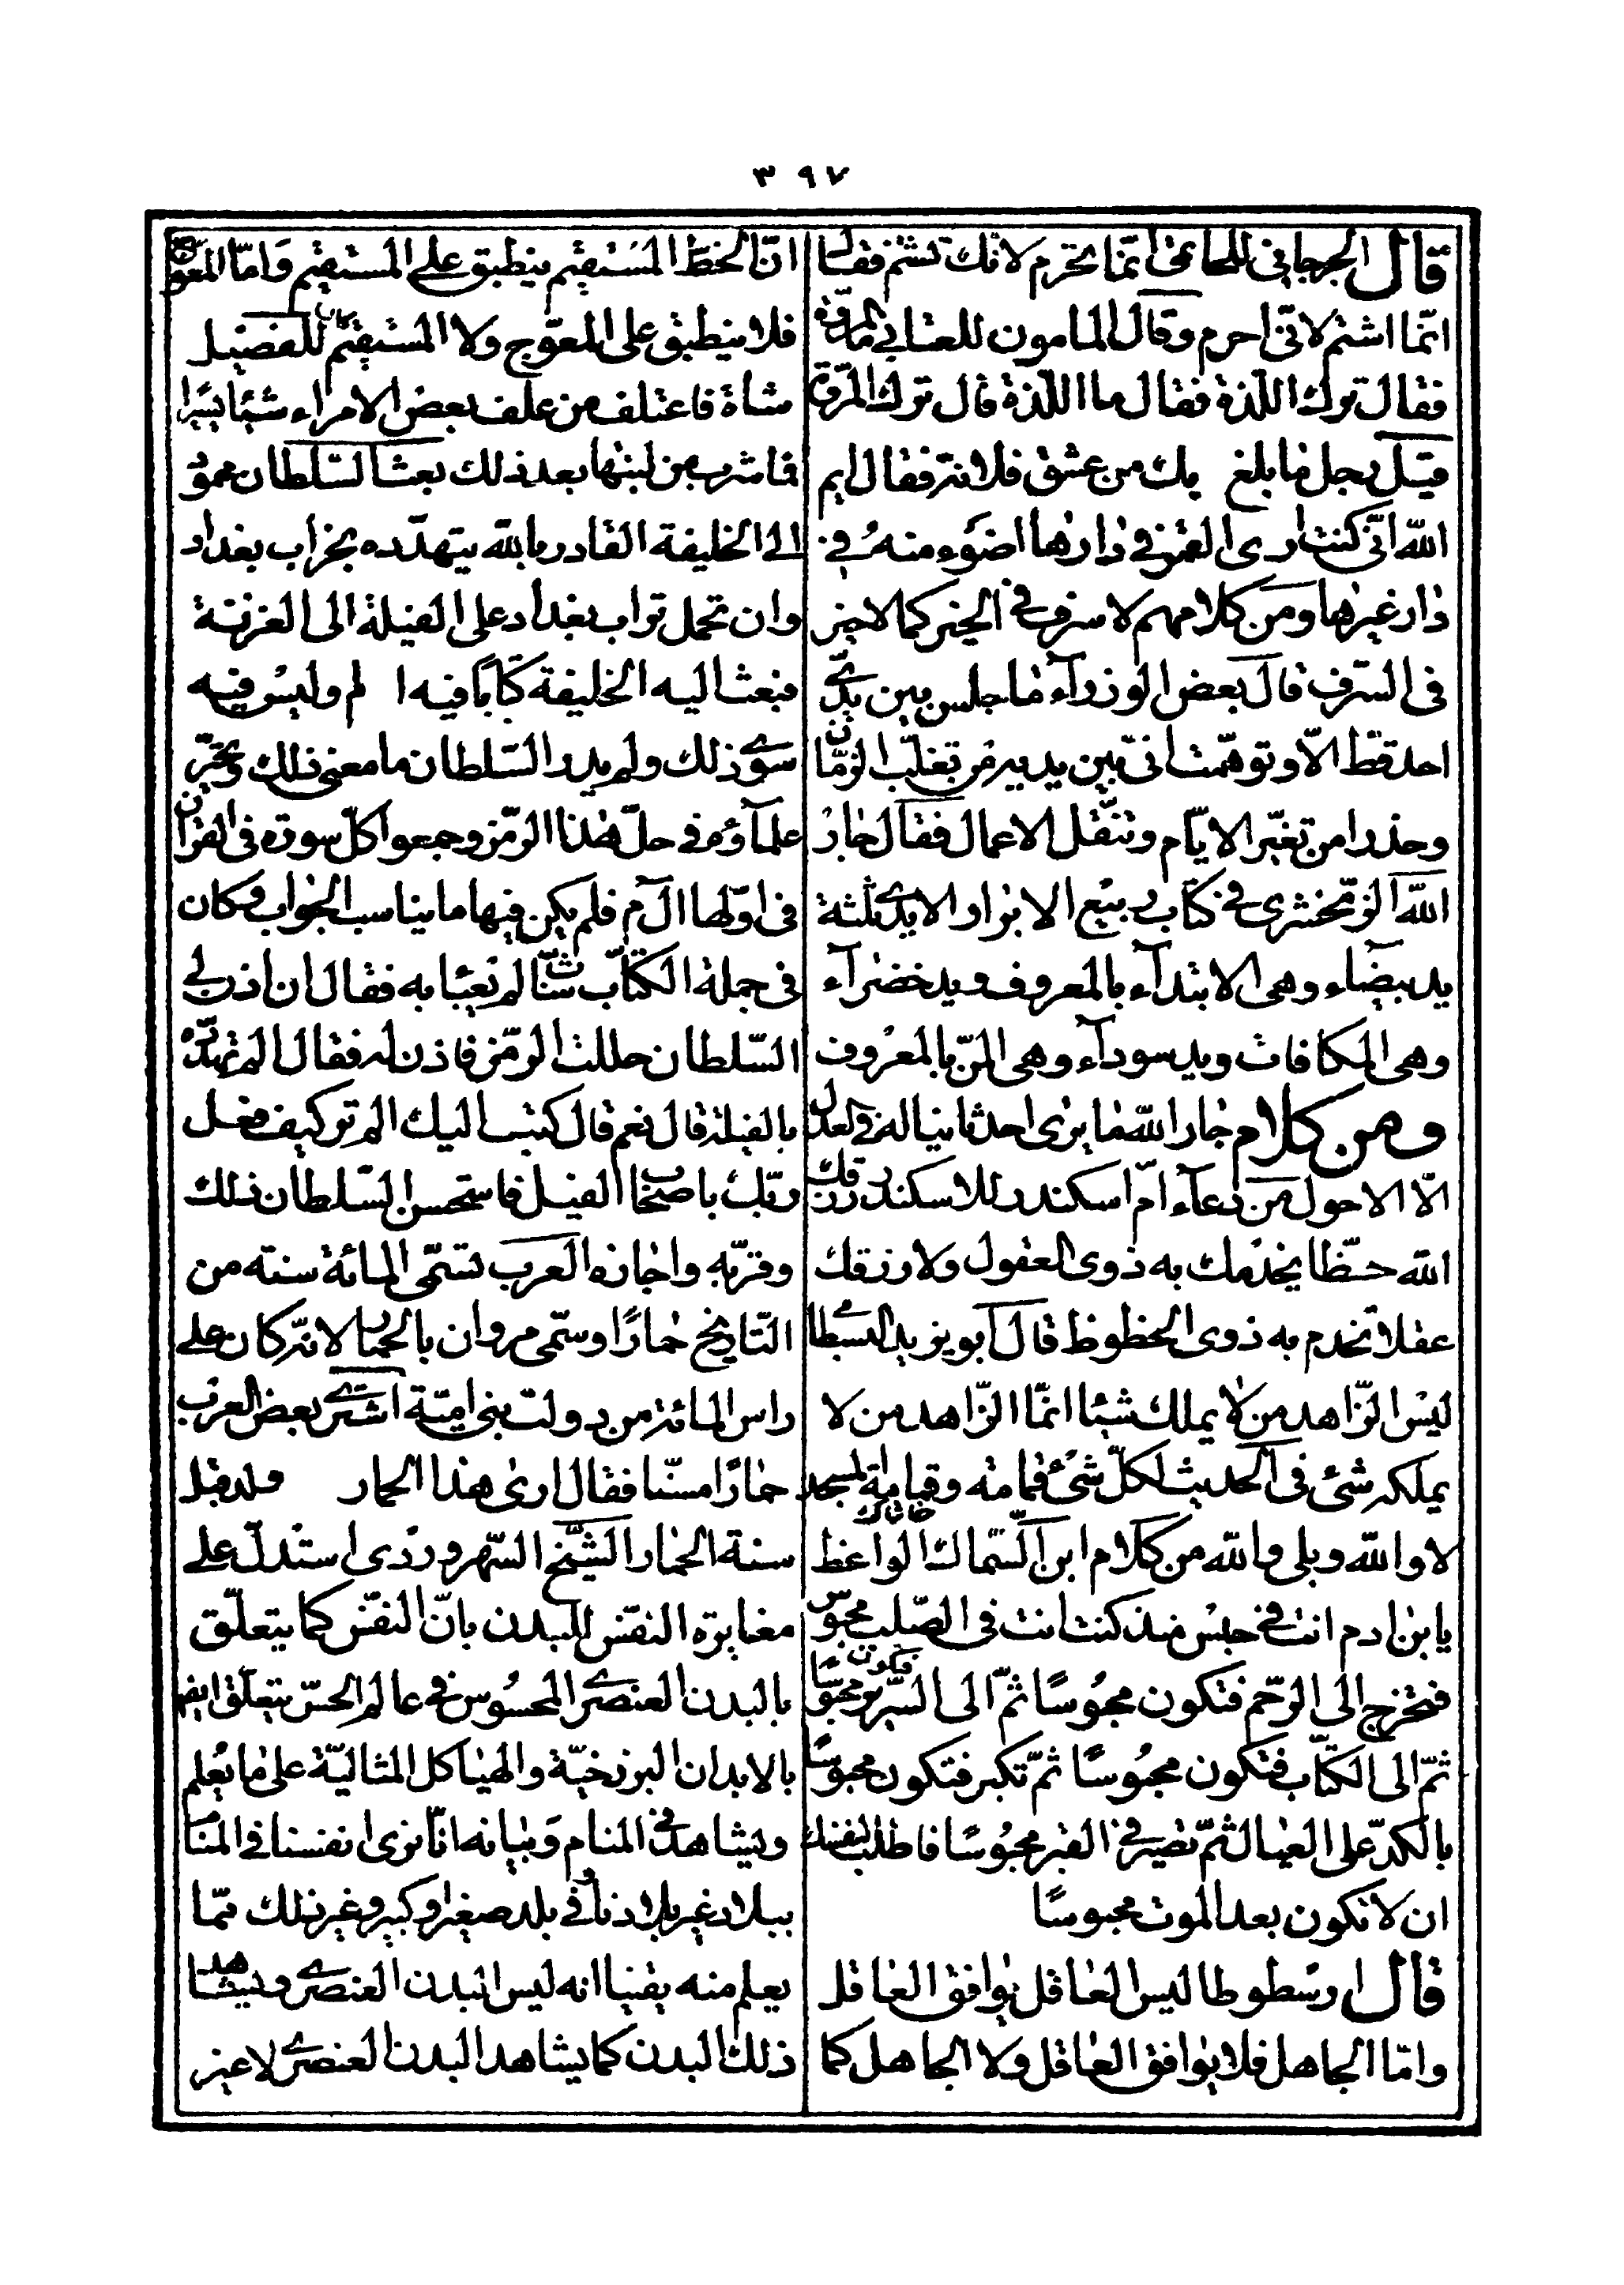 ٣٩٧
قال الجرجاني للطاعني انّما تحرم لانّك تشتم فقال
انّما اشتم لانّى احرم وقال المامون للعتابي ما المروّة
فقال ترك اللّذة فقال ما اللّذة قال ترك المروّة
قيل لرجل ما بلغ بك من عشق فلانة فقال ايم
اللّه انّى كنت ارى القمر في دارها اضوء منه في
دار غيرها ومن كلامهم لا سرف في الخير كما لا خير
فى السّرف قال بعض الوزرآء ما جلس بين يديّ
احد قطّ الّا وتوهّمت انّى بين يديه من تقلّب الزّمان
وحذرا من تغيّر الايّام وتنقّل الاعمال فقال جار
اللّه الزّمخشرى في كتاب ربيع الابرار الايدي ثلثة
يد بيضاء وهى الابتدآء بالمعروف ويد خضرآء
وهى المكافات ويد سودآء وهى المنّ بالمعروف
ومن كلام جار اللّه ما يرى احد ثانيا له في العدل
الّا الاحول من دعآء امّ اسكندر للاسكندر رزقك
اللّه حظّا يخدمك به ذوى العقول ولا رزقك
عقلا تخدم به ذوى الحظوظ قال ابو يزيد البسطامي
ليس الزّاهد من لا يملك شيئا انّما الزّاهد من لا
يملكه شئ فى الحديث لكلّ شئ قمامة وقمامة المسجد
لا واللّه وبلى واللّه من كلام ابن السّماك الواعظ
يا بن ادم انت في حبس منذ كنت انت فى الصّلب محبوس
فتخرج الى الرّحم فتكون محبوسًا ثمّ الى السّرير فتكون محبوسًا
ثمّ الى الكتّاب فتكون محبوسًا ثمّ تكبر فتكون محبوسًا
بالكدّ على العيال ثمّ تصير في القبر محبوسًا فاطلب لنفسك
ان لا تكون بعد الموت محبوسًا
قال ارسطوطاليس العاقل يوافق العاقل
وامّا الجاهل فلا يوافق العاقل ولا الجاهل كما
انّ الخطّ المستقيم ينطبق على المستقيم وامّا المعوّج
فلا ينطبق على المعوّج ولا المستقيم كان للفضيل
شاة فاعتلف من علف بعض الامراء شيئا يسيرا
فما شرب من لبنها بعد ذلك بعث السّلطان محمود
الى الخليفة القادر باللّه يتهدّده بخراب بغداد
وان تحمل تراب بغداد على الفيلة الى الغزنة
فبعث اليه الخليفة كتابًا فيه ا لم وليس فيه
سوى ذلك ولم يدر السّلطان ما معنى ذلك وتحيّر
علمآؤه في حلّ هذا الرّمز وجمعوا كلّ سورة فى القران
فى اوّلها الم فلم يكن فيها ما يناسب الجواب وكان
فى جملة الكتّاب شابّ لم يعبا به فقال ان اذن لي
السّلطان حللت الرّمز فاذن له فقال الم تهدّده
بالفيلة قال نعم قال كتب اليك الم تر كيف فعل
ربّك باصحاب الفيل فاستحسن السّلطان ذلك
وقرّبه واجازه العرب تسمّى المائة سنة من
التّاريخ حمارًا وسمّى مروان بالحمار لانّه كان على
راس المائة من دولت بنى اميّة اشترى بعض العرب
حمارًا مسنّا فقال ارى هذا الحمار ولد قبل
سنة الحمار الشّيخ السّهروردى استدلّ على
مغايرة النفس للبدن بانّ النفس كما يتعلّق
بالبدن العنصرى المحسوس في عالم الحسّ يتعلّق ايضا
بالابدان البرزخيّة والهياكل المثاليّة على ما يعلم
ويشاهد في المنام وبيانه انّا نرى انفسنا في المنام
ببلاد غير بلادنا في بلد صغير او كبير وغير ذلك ممّا
يعلم منه يقينا انه ليس البدن العنصرى ويشاهد
ذلك البدن كما يشاهد البدن العنصرى لا غير